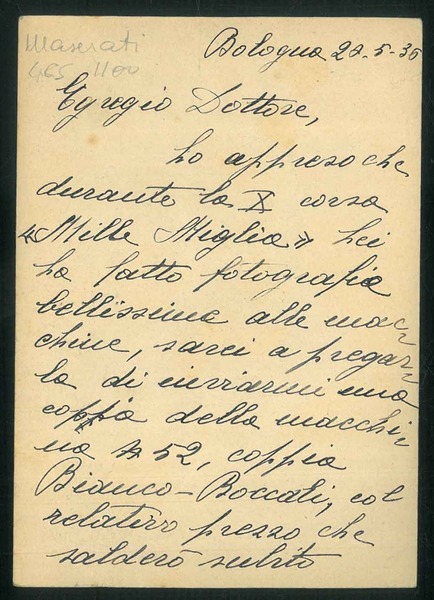 Maserati
1100
Bologna 22-5-36
Egregio Dottore,
ho appreso che
durante la X corsa
«Mille Miglia» Lei
ha fatto fotografie
bellissime alle mac-
chine, sarei a pregar-
la di inviarmi una
coppia della macchi-
na N 52, coppia
Bianco-Boccali, col
relativo prezzo che
salderò subito